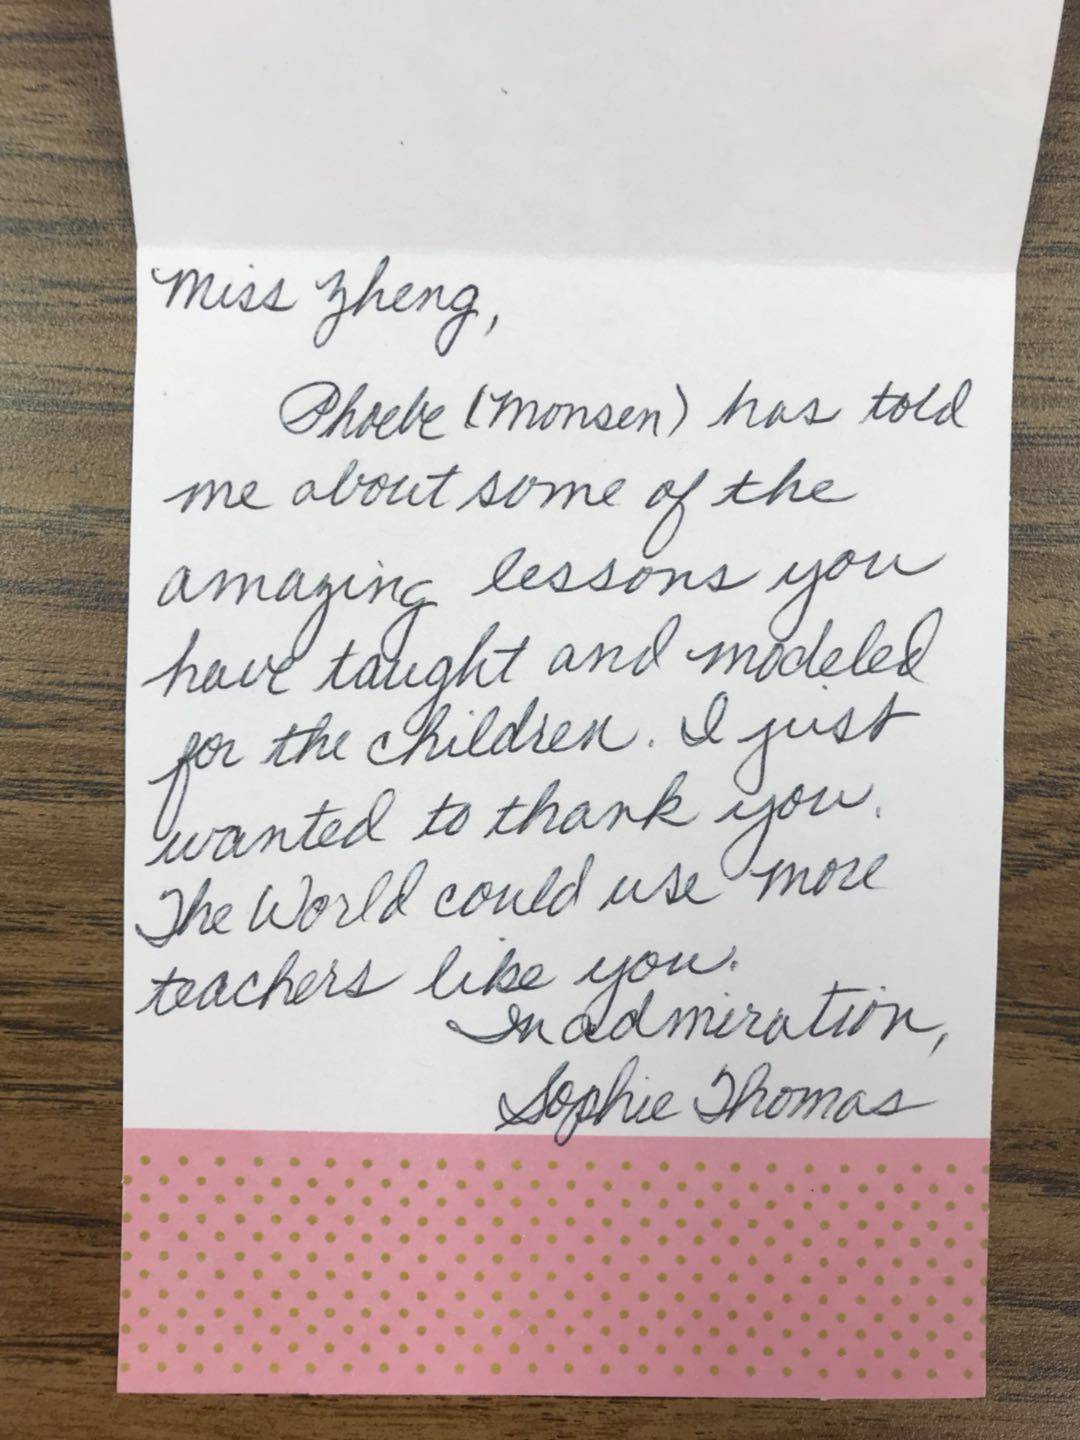 Miss Zheng,
Phoebe (Monsen) has told
me about some of the
amazing lessons you
have taught and modeled
for the children. I just
wanted to thank you.
The World could use more
teachers like you.
In admiration,
Sophie Thomas